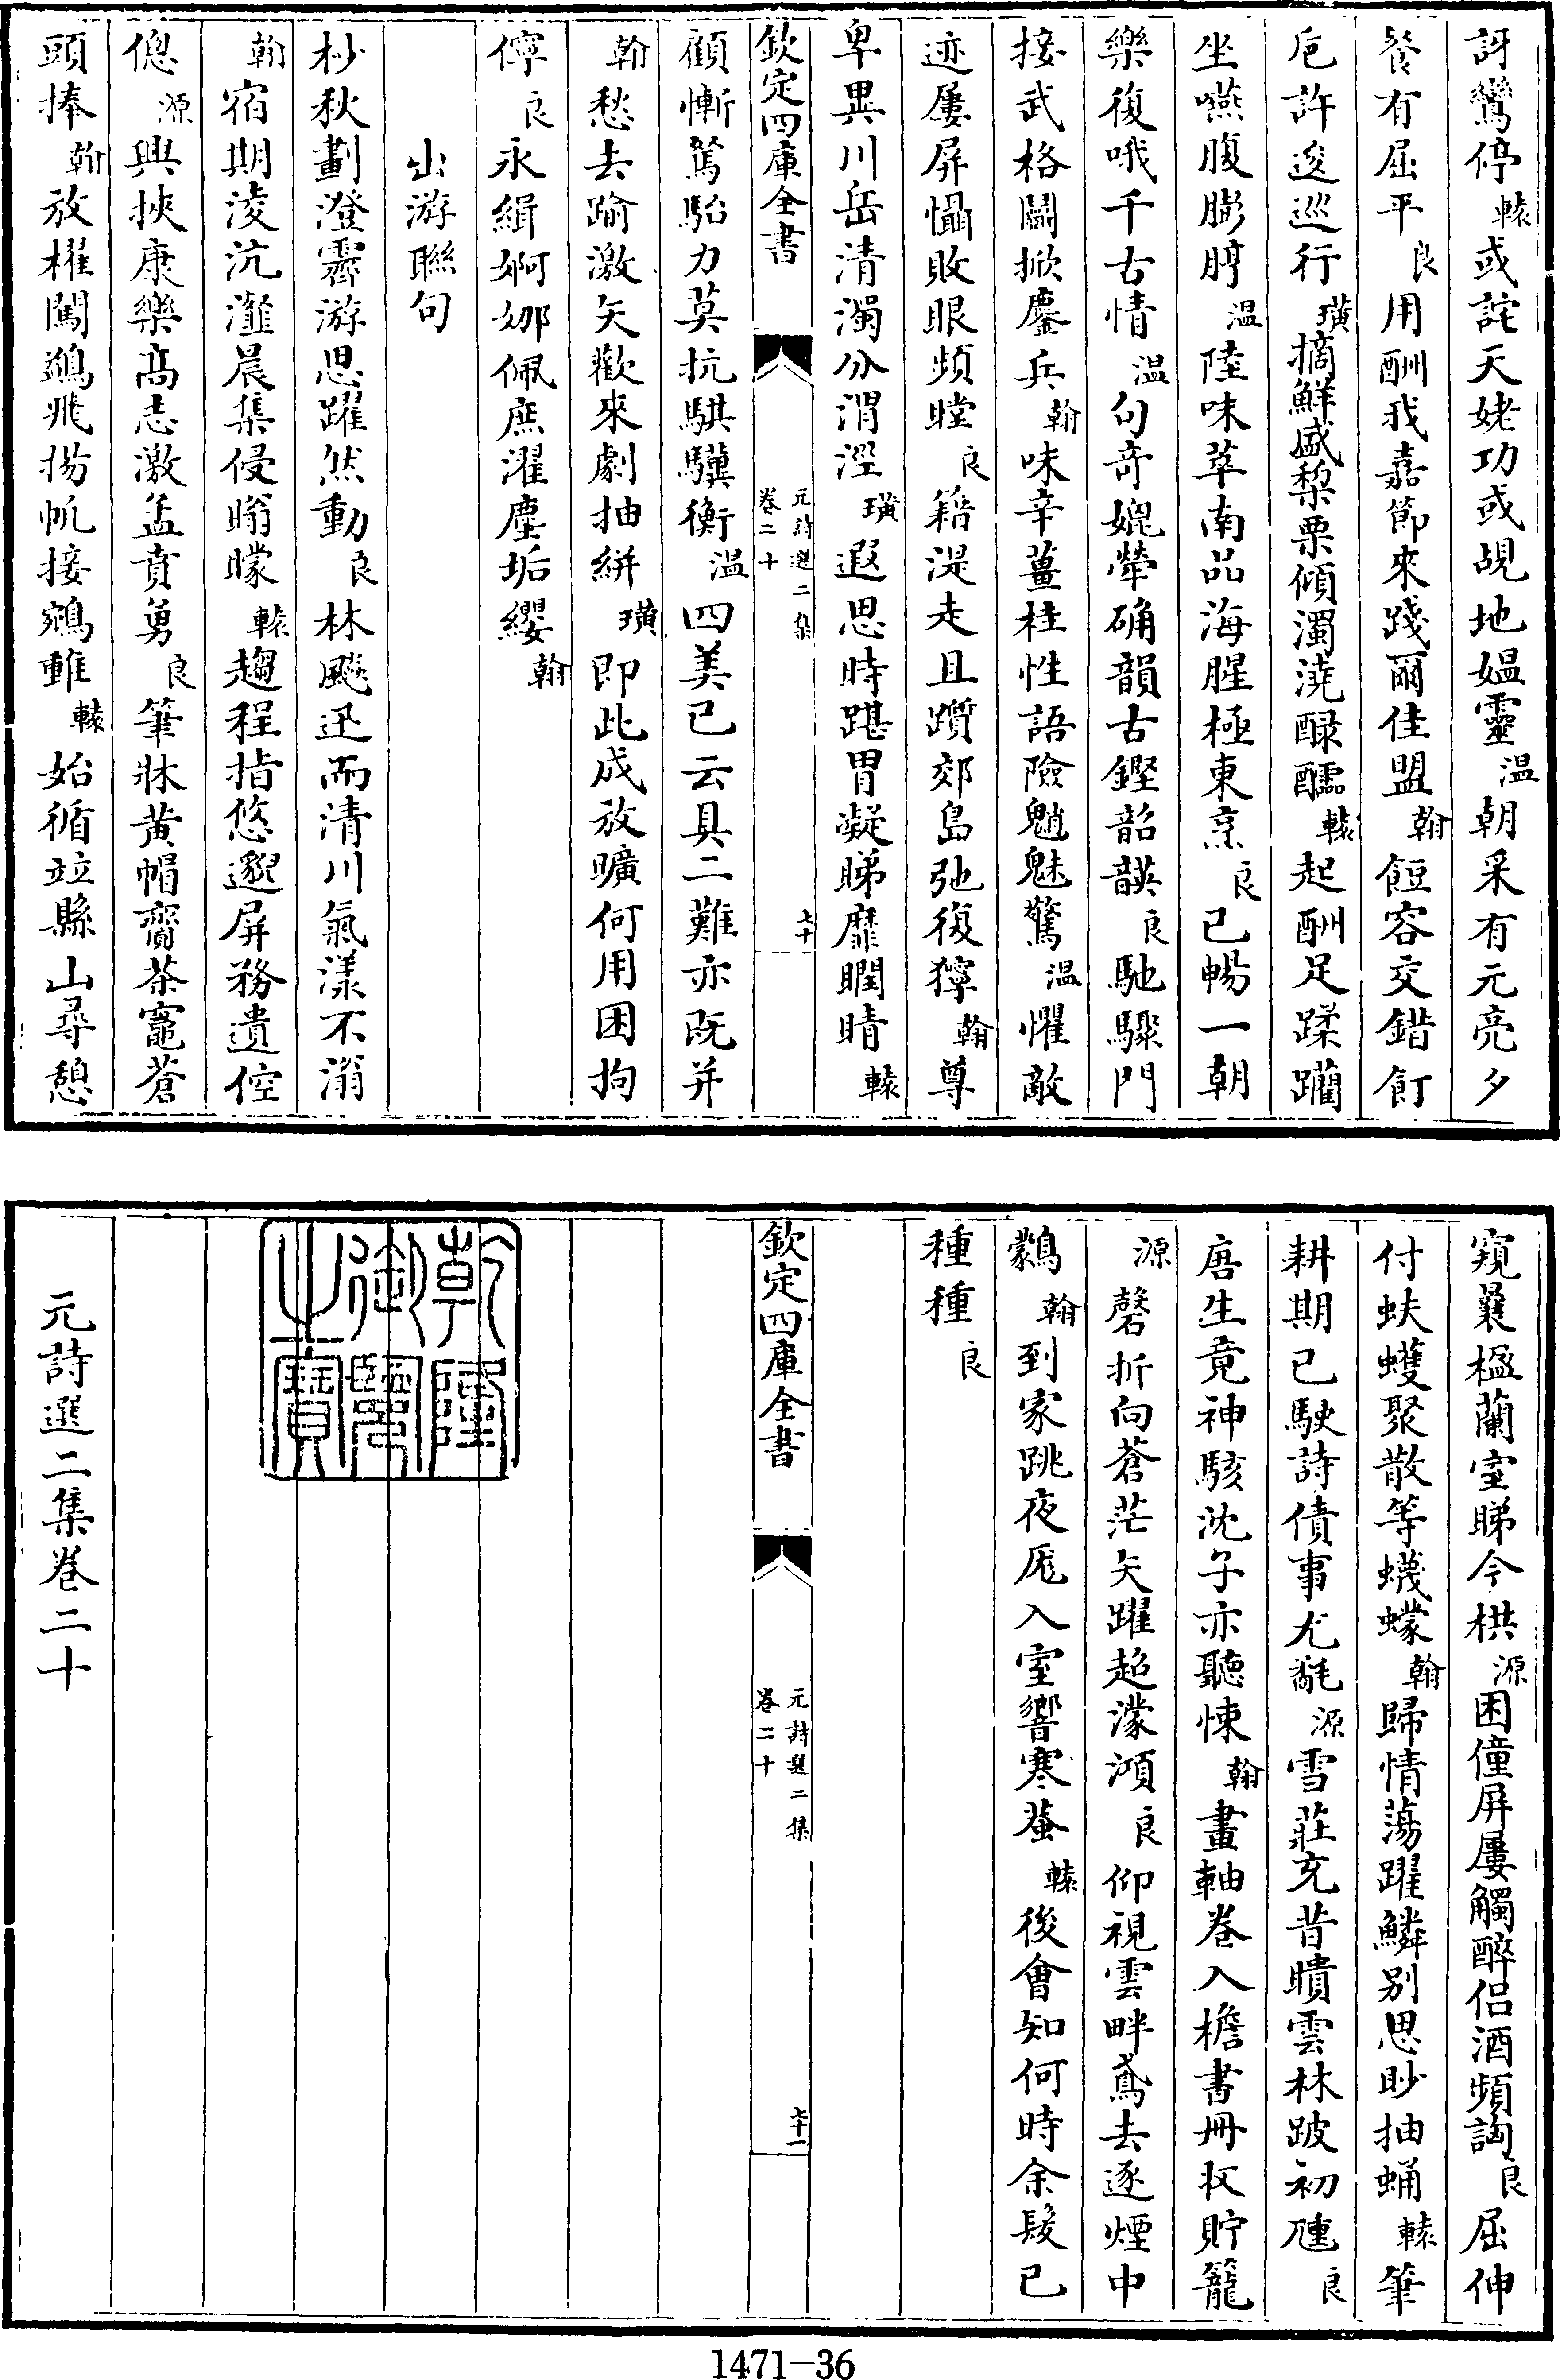 訝鸞停轅或詫天姥功或覘地媪靈温朝采有元亮夕
餐有屈平良用酬我嘉節來踐爾佳盟翰餖容交錯飣
巵許逡巡行璜摘鮮盛梨栗傾濁澆醁醽轅起酬足蹂躪
坐嚥腹膨脝温陸味萃南品海腥極東烹良已暢一朝
樂復哦千古情温句奇媲犖确韻古鏗韶韺良馳驟門
接武格鬭掀鏖兵翰味辛薑桂性語險魈魅驚温懼敵
迹屢屏懾敗眼頻瞠良籍湜走且躓郊島弛復獰翰尊
卑異川岳清濁分渭涇璜遐思時踑胃凝睇靡瞤睛轅
欽定四庫全書
元詩選二集
卷二十
七十
顧慚駑駘力莫抗騏驥衡温四美已云具二難亦既并
翰愁去踰激矢歡來劇抽絣璜即此成放曠何用困拘
儜良永緝婀娜佩庶濯塵垢纓翰
出游聯句
杪秋劃澄霽游思躍然動良林飈迅而清川氣漾不滃
翰宿期淩沆瀣晨集侵暡曚轅趨程指悠邈屏務遺倥
傯源興挾康樂高志激孟賁勇良筆牀黄帽齎茶竈蒼
頭捧翰放櫂闖鷁飛揚帆接鵷䡴轅始循竝縣山尋憩
窺曩楹蘭室睇今栱源困僮屏屢觸醉侣酒頻詾良屈伸
付蚨蠖聚散等蠛蠓翰歸情蕩躍鱗别思眇抽蛹轅筆
耕期已駛詩債事尤氄源雪莊充昔瞶雲林跛初㾮良
唐生竟神駭沈子亦聽悚翰畫軸卷入檐書冊収貯籠
源磬折向蒼茫矢躍起濛澒良仰視雲畔鳶去逐煙中
鸏翰到家跳夜厖入室響寒蛬轅後會知何時余髮已
種種良
欽定四庫全書
元詩選二集
卷二十
七十一
乾隆御覽之寶
元詩選二集卷二十
1471-36